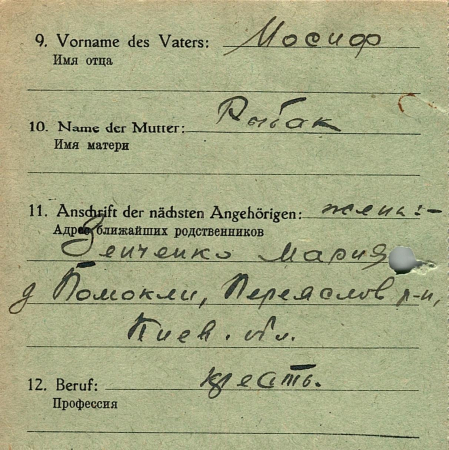 9. Vorname des Vaters: Иосиф
Имя отца
10. Name der Mutter: Рыбак
Имя матери
11. Anschrift der nächsten Angehörigen: жена:-
Адрес ближайших родственников
Зенченко Мария
д Помокли, Переяслов р-н,
Киев. обл.
12. Beruf: крестьб.
Профессия